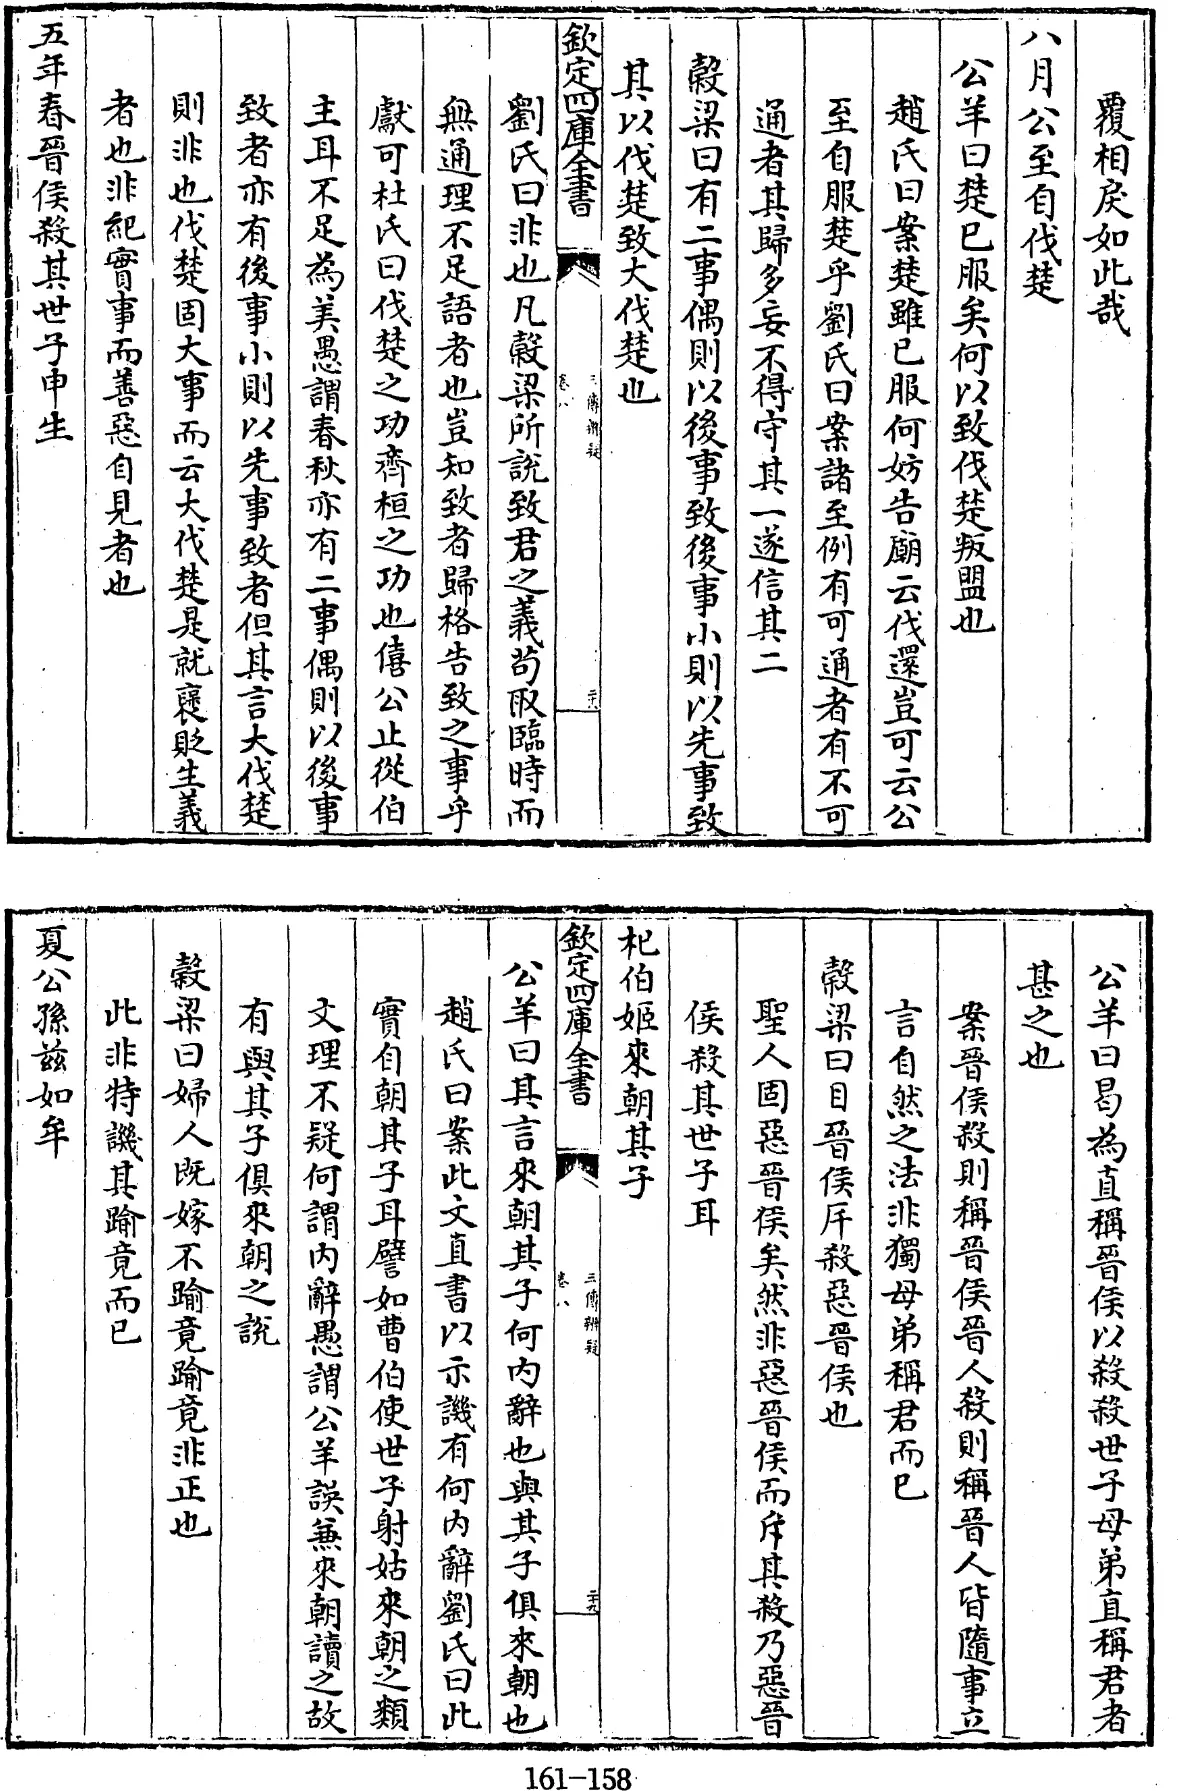 覆相戾如此哉
八月公至自伐楚
公羊曰楚已服矣何以致伐楚叛盟也
趙氏曰案楚雖已服何妨告廟云伐還豈可云公
至自服楚乎劉氏曰案諸至例有可通者有不可
通者其歸多妄不得守其一遂信其二
榖梁曰有二事偶則以後事致後事小則以先事致
其以伐楚致大伐楚也
欽定四庫全書
三傳辨疑
卷八
二十八
劉氏曰非也凡榖梁所說致君之義苟取臨時而
無通理不足語者也豈知致者歸格告致之事乎
獻可杜氏曰伐楚之功齊桓之功也僖公止從伯
主耳不足為美愚謂春秋亦有二事偶則以後事
致者亦有後事小則以先事致者但其言大伐楚
則非也伐楚固大事而云大伐楚是就襃貶生義
者也非紀實事而善惡自見者也
五年春晉侯殺其世子申生
公羊曰曷為直稱晉侯以殺殺世子母弟直稱君者
甚之也
案晉侯殺則稱晉侯晉人殺則稱晉人皆隨事立
言自然之法非獨母弟稱君而已
榖梁曰目晉侯斥殺惡晉侯也
聖人固惡晉侯矣然非惡晉侯而斥其殺乃惡晉
侯殺其世子耳
杞伯姬來朝其子
欽定四庫全書
三傳辨疑
卷八
二十九
公羊曰其言來朝其子何內辭也與其子俱來朝也
趙氏曰案此文直書以示譏有何內辭劉氏曰此
實自朝其子耳譬如曹伯使世子射姑來朝之類
文理不疑何謂內辭愚謂公羊誤兼來朝讀之故
有與其子俱來朝之說
榖梁曰婦人既嫁不踰竟踰竟非正也
此非特譏其踰竟而已
夏公孫兹如牟
161-158